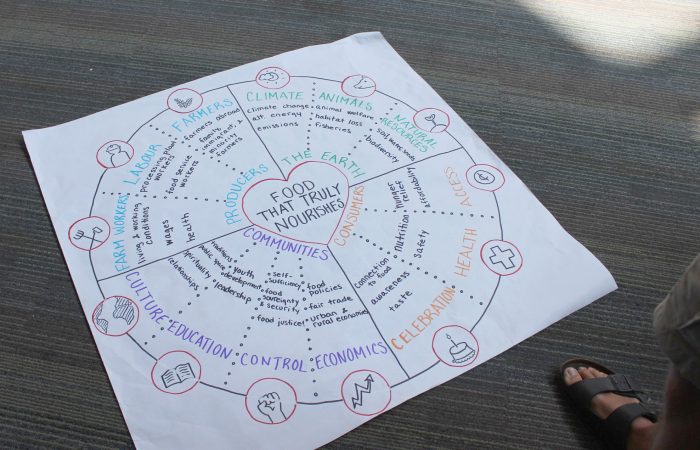 FOOD
THAT TRULY
NOURISHES
THE EARTH
CLIMATE
climate change
alt. energy
emissions
ANIMALS
animal welfare
habitat loss
fisheries
NATURAL
RESOURCES
soil, water, seeds
biodiversity
CONSUMERS
ACCESS
affordability
hunger
relief
HEALTH
nutrition
safety
CELEBRATION
connection
to food
awareness
taste
COMMUNITIES
ECONOMICS
food
policies
fair trade
urban &
rural economies
CONTROL
self-
sufficiency
food
sovereignty
security
food justice!
EDUCATION
youth
development
leadership
CULTURE
traditions
public space
spirituality
relationships
PRODUCERS
FARM WORKERS
living & working
conditions
wages
health
LABOUR
processing plant
workers
food service
workers
FARMERS
farmers abroad
family,
immigrant, &
minority
farmers